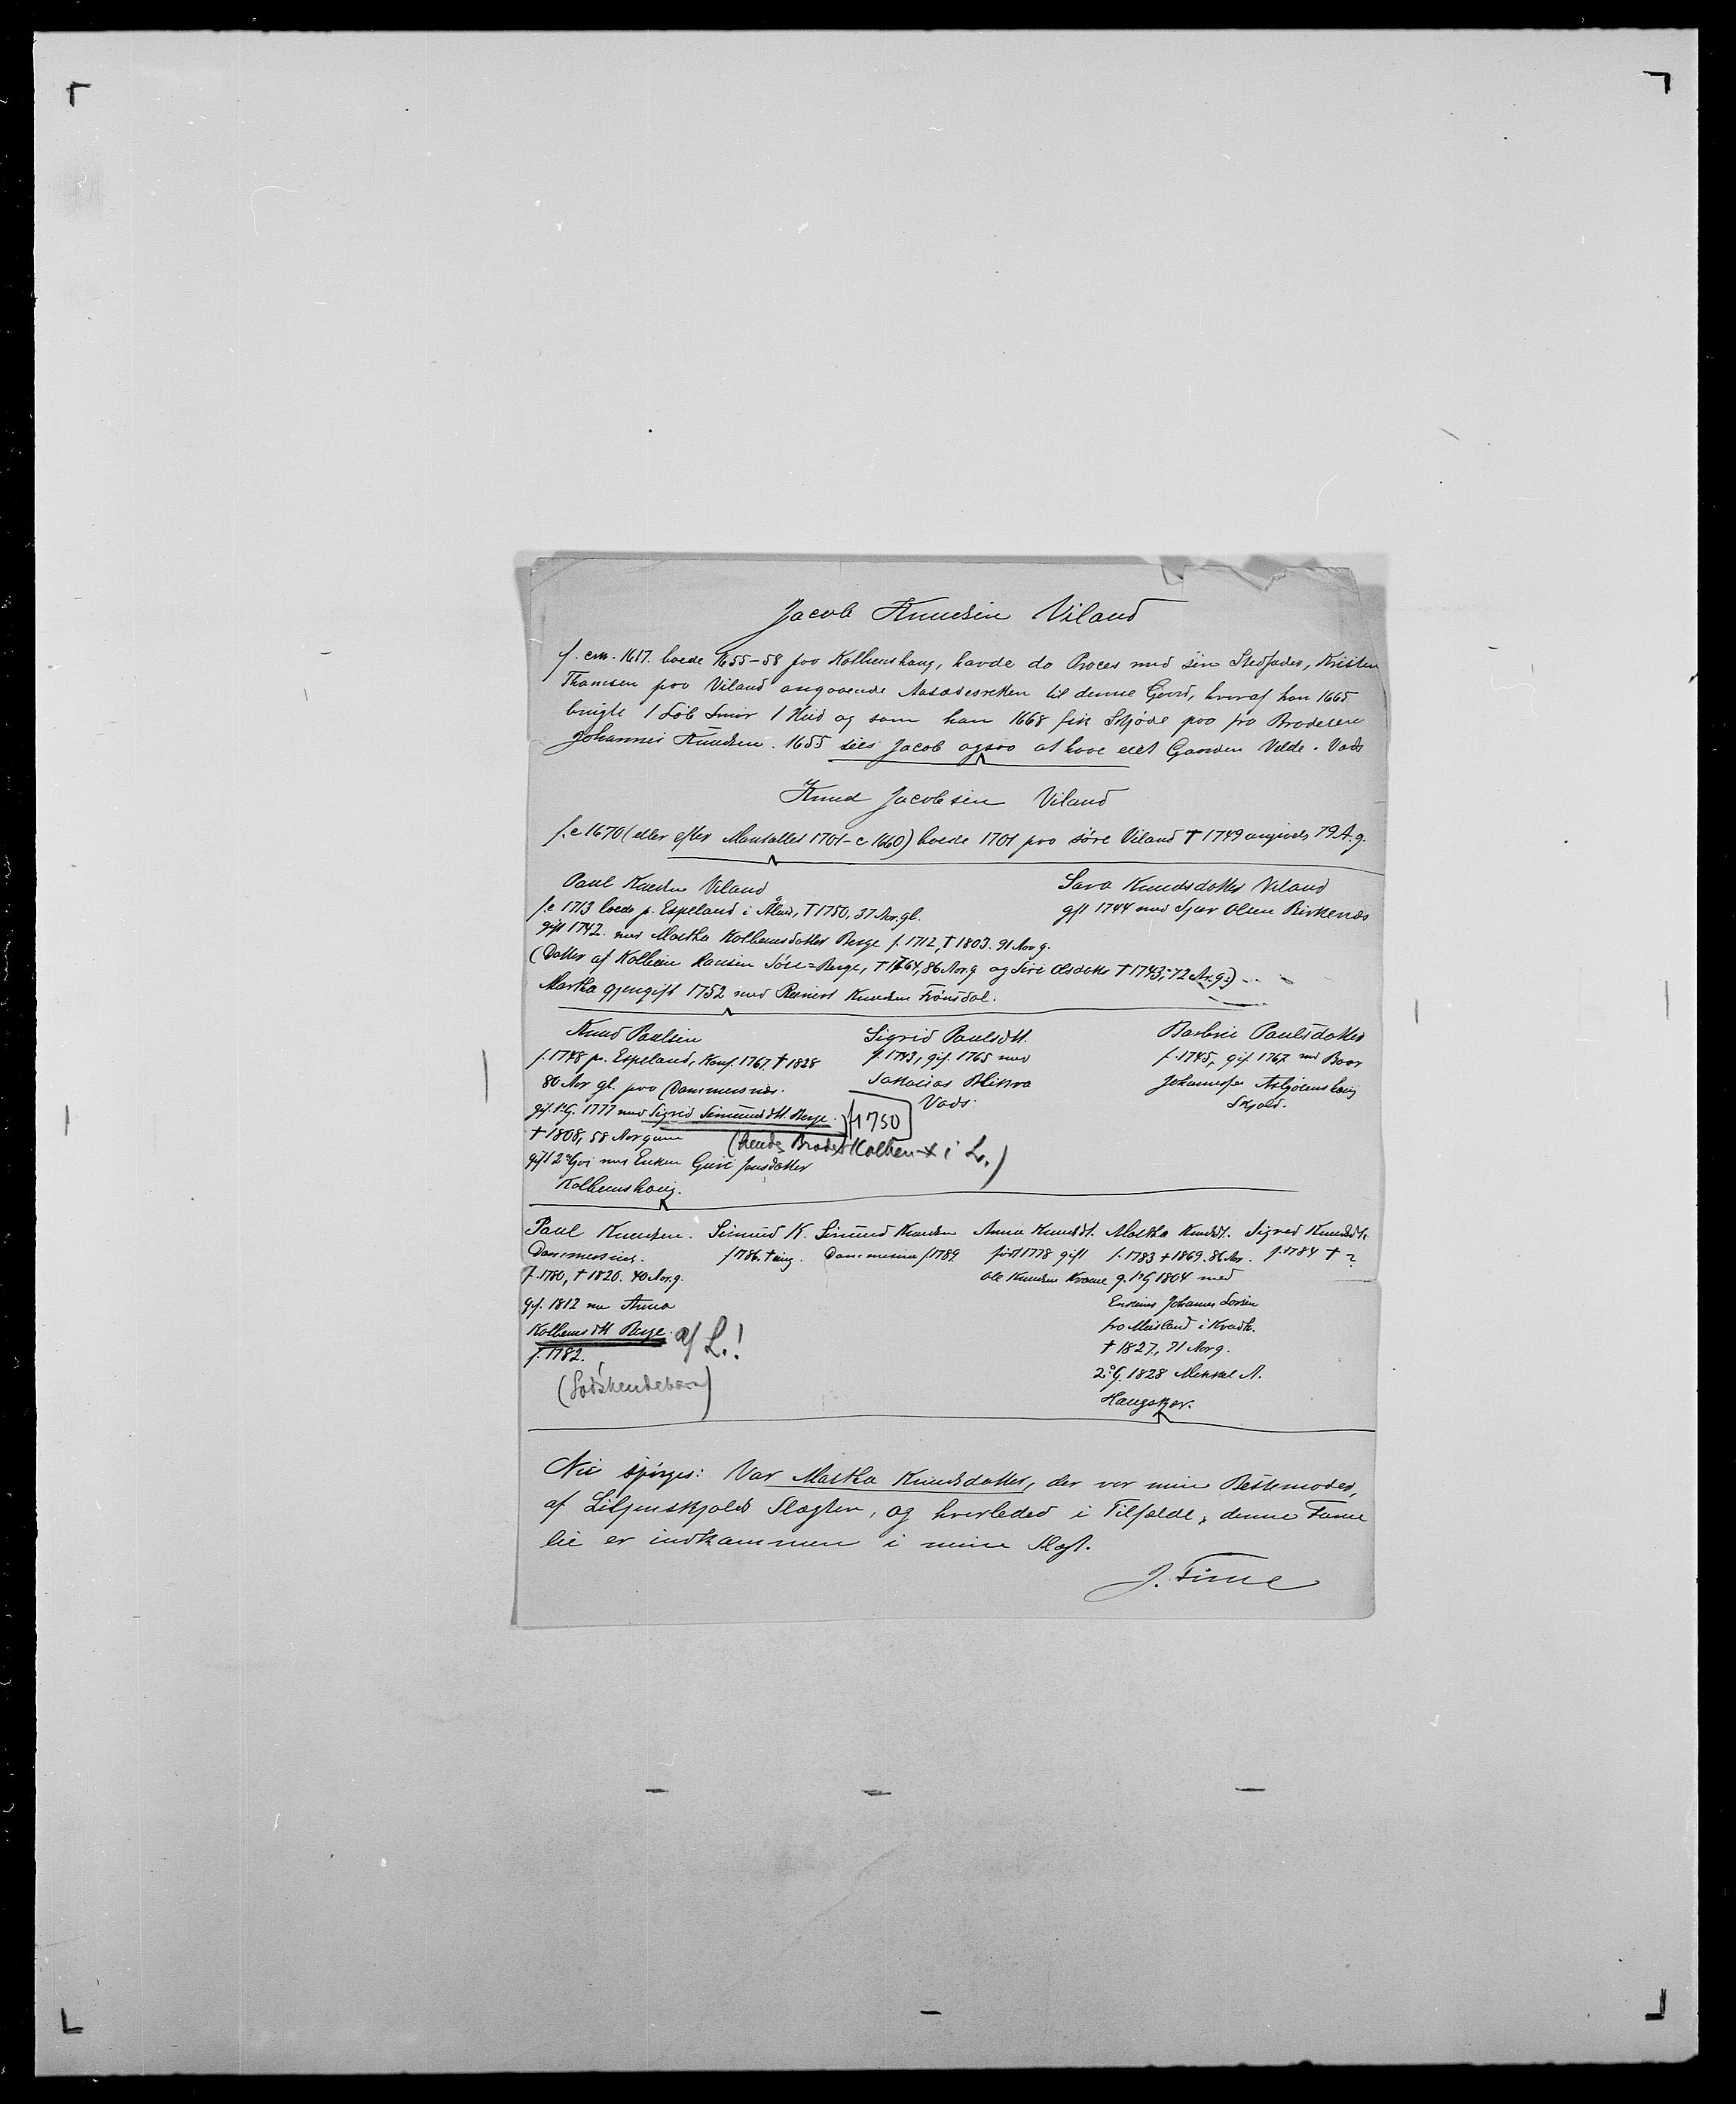 Jacob Knudsen Viland
f. cra. 1617. boede 1655-58 paa Kolbenshaug, havde da Proces med sin Stedfader, Kristen
Thamsen paa Viland angaaende Aasædesretten til denne Gaard, hvoraf han 1665
brugte 1 Løb Smør 1 Hud og som han 1668 fik Skjøde paa fra Broderen
Johannes Knudsen. 1655 sies Jacob ogsaa at have eiet Gaarden Velde. Vads
Knud Jacobsen Viland
f. c 1670 (eller efter Mantallet 1701 - c 1660) boede 1701 paa søre Viland † 1749 angivels 79 A. g.
Paul Knudsen Viland
f. c 1713 boede p. Espeland i Ålad, † 1750, 37 Aar gl.
gift 1742. med Martha Kolbensdatter Berge f. 1712, † 1803. 91 Aar g.
(Datter af Kolbein Hansen Søre=Berge, † 1764, 86 Aar. g og Siri Olsdatter † 1743, 72 Aar. g.)
Martha gjengift 1752 med Reinert Knudsen Frønsdal.
Sara Knudsdatter Viland
gft 1744 med Sjur Olsen Birkenæs
Knud Paulsen
f. 1748 p. Espeland, Konf. 1767. † 1828
80 Aar gl. paa Dammesnæs.
gif. 1º G. 1777 med Sigrid Simundsdtt. Berge f 1750
† 1808, 58 Aar gam (hendes Broder Kolben x i L.)
gift 2º Ggj med Enken Guri Jensdatter
Kolbenshaug.
Sigrid Paulsdtt.
f. 1743, gif. 1765 med
Sakarias Blikra
Vads.
Barbrei Paulsdatter
f. 1745, gif. 1767 med Baar
Johannesen Asbjørnshaug
Skjold.
Paul Knudsen.
Dammesnes.
f. 1780, † 1820. 40 Aar. g.
Gif. 1812 m Anna
Kolbensdtt Berge. af L.!
f. 1782.
(Sødskendebarn)
Simund K.
f 1786. † ung.
Simund Knudsen
Dammesnæs f 1789.
Anna Knudsdt.
født 1778 gift
Ole Knudsen Kvame
Martha Knudsdt.
f. 1783 + 1869. 86 Aar.
g. 1º G 1804 med
Enkem Johannes Larsen
fra Meiland i Kvadh.
† 1827, 71 Aar g.
2º G. 1828 Mikkal A.
Haugskar.
Sigred Knudsdt.
f. 1784 † ?
Nu spørges: Var Martha Knudsdatter, der var min Bestemoder,
af Liljenskjolds Slægten, og hvorledes i Tilfælde, denne Fame
lie er indkammen i min Slægt.
J. Time